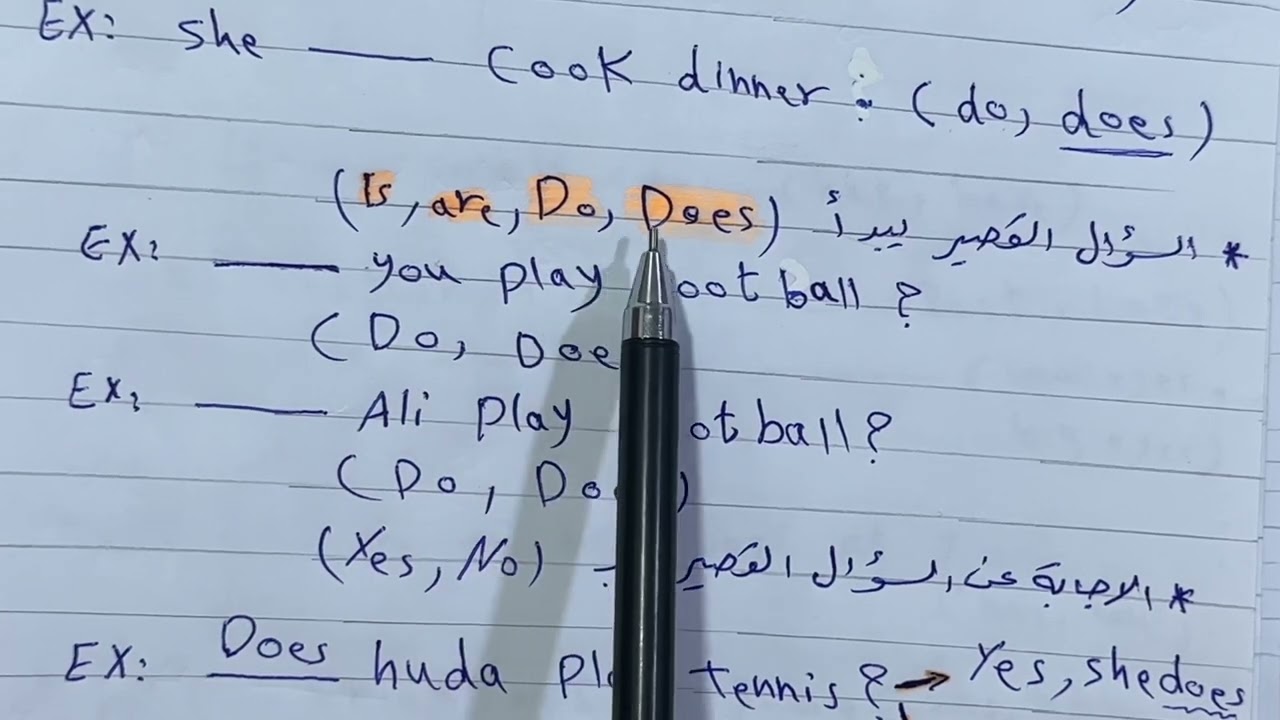 EX: she ___ cook dinner: (do, does)
* السؤال القصير يبدأ (Is, are, Do, Does)
EX: ___ you play ootball ?
(Do, Doe
Ex: ___ Ali play otball?
(Do, Do )
* الاجابة عن السؤال القصير ب (Yes, No)
EX: Does huda pl tennis? → Yes, she does